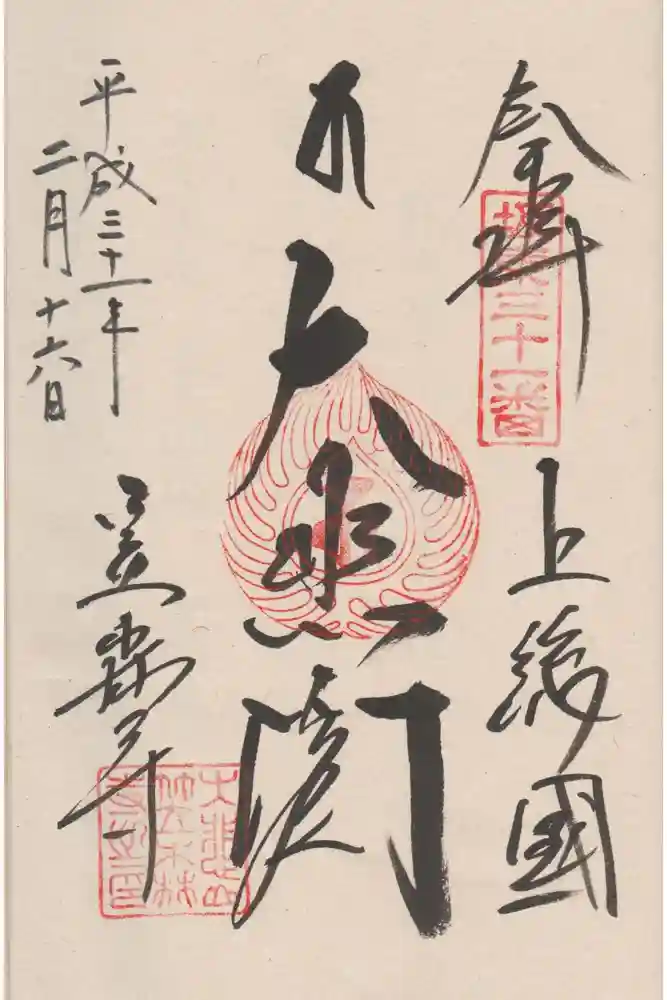 奉拝
坂東三十一番
上総國
大悲閣
平成三十一年
二月十六日
笠森寺
大悲山笠森寺之印